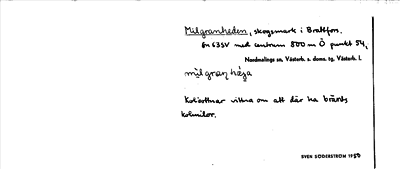 Milgranheden, skogsmark i Brattfors.
En 635V med centrum 800 m Ö punkt 54,
Nordmalings sn, Västerb. s. doms. tg. Västerb. l.
Kolbottnar vittna om att där ha bränts
kolmilor.
SVEN SÖDERSTRÖM 1950